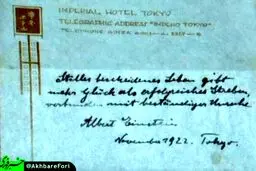 IMPERIAL HOTEL TOKYO
TELEGRAPHIC ADDRESS "IMPEHO TOKYO"
TELEPHONE GINZA
Stilles bescheidenes Leben gibt
mehr Glück als erfolgreiches Streben,
verbunden mit beständiger Unruhe.
Albert Einstein
November 1922. Tokyo.
@AkhbareFori